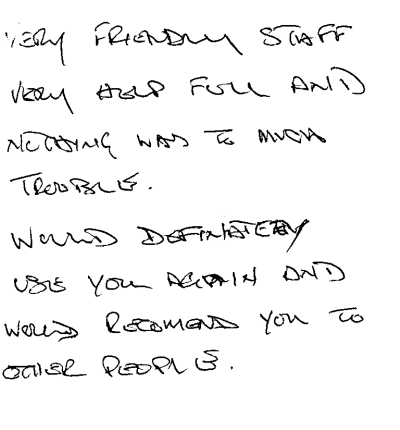 VERY FRIENDLY STAFF
VERY HELP FULL AND
NOTHING WAS TO MUCH
TROUBLE.
WOULD DEFINATELY
USE YOU AGAIN AND
WOULD RECOMEND YOU TO
OTHER PEOPLE.